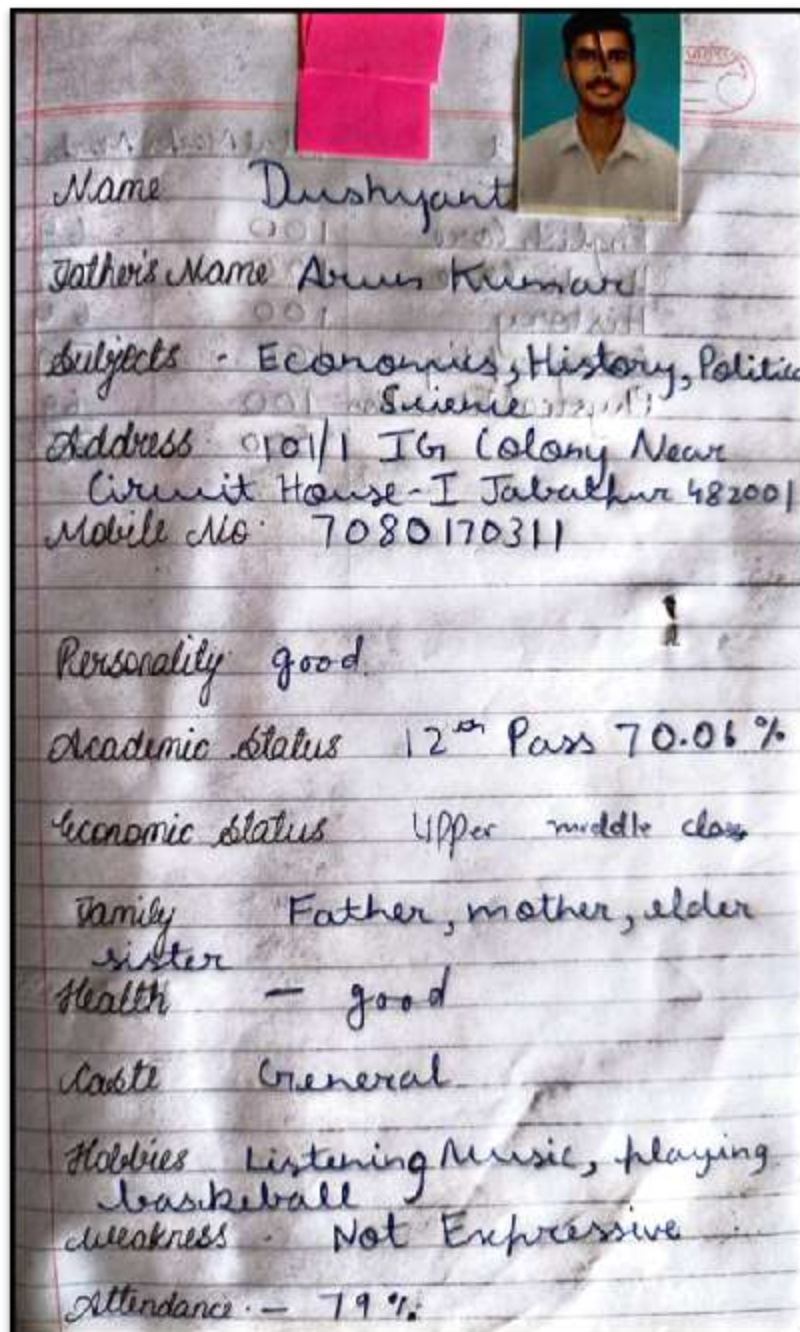 Name Dushyant
Father's Name Arun Kumar
Subjects - Economics, History, Politic
Science
Address 101/1 IG Colony Near
Circuit House-I Jabalpur 482001
Mobile No. 7080170311
Personality good
Academic Status 12th Pass 70.06 %
Economic Status Upper middle class
Family Father, mother, elder
sister
Health - good
Caste General
Hobbies Listening Music, playing
baskeball
Weakness . Not Expressive
Attendance. - 79 %.